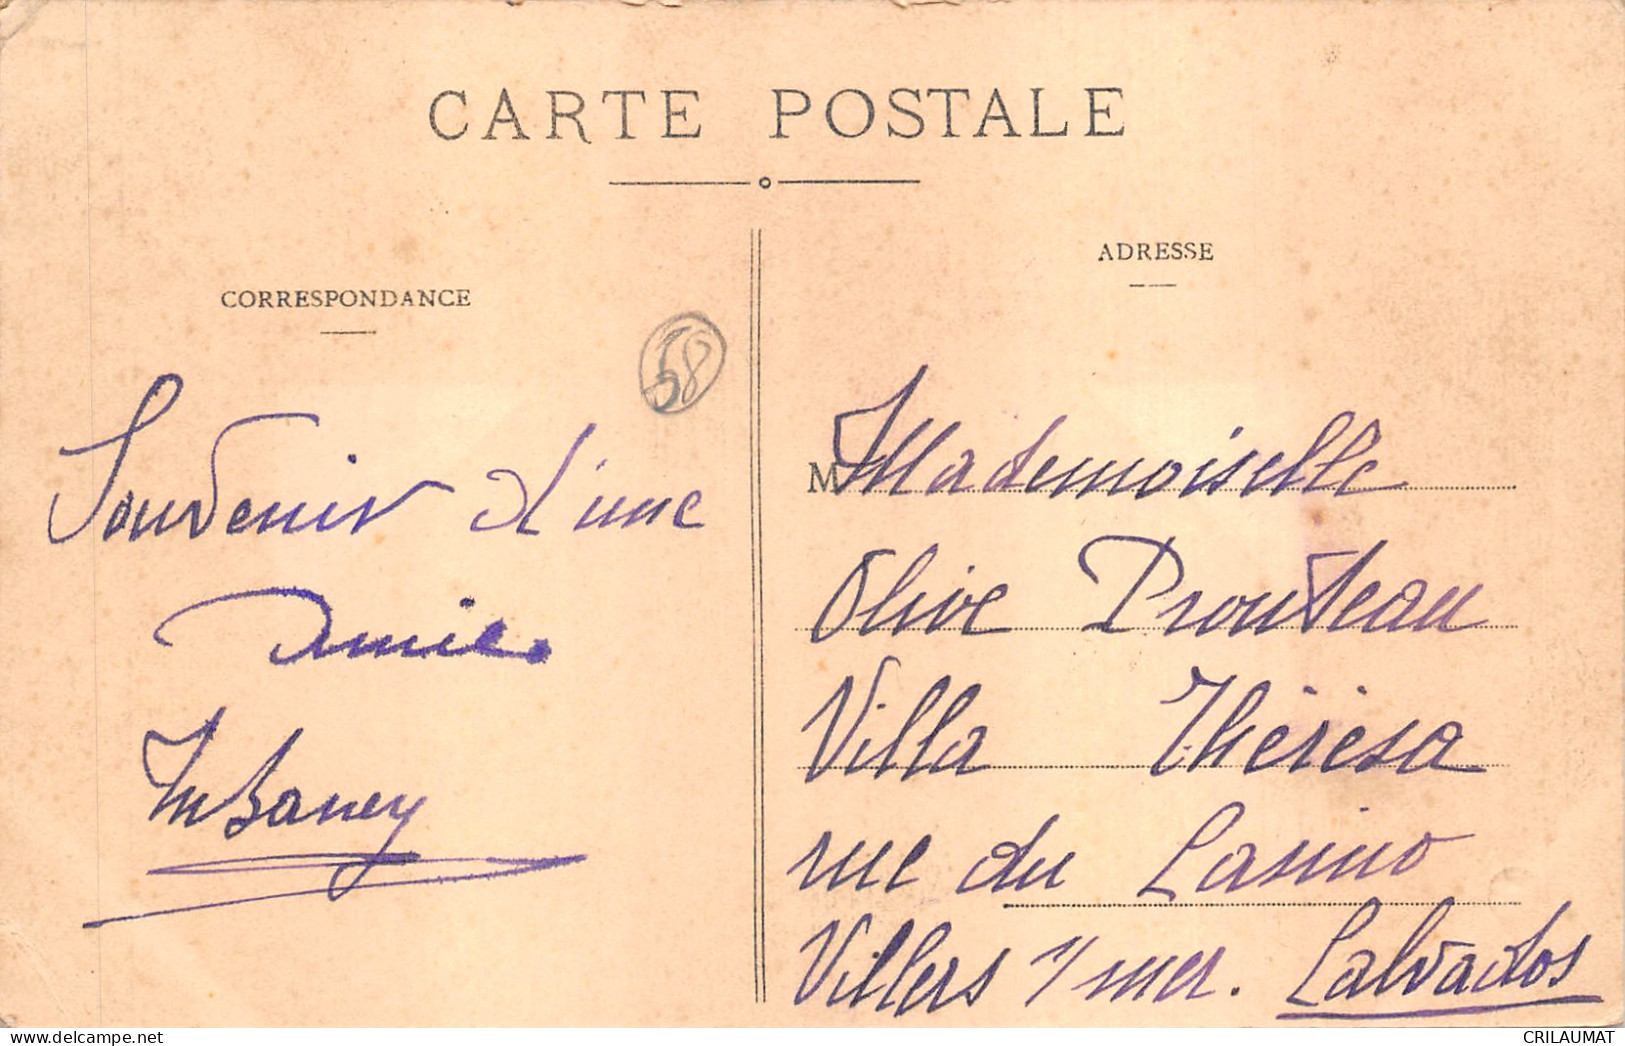 CARTE POSTALE
CORRESPONDANCE
ADRESSE
58
Souvenir d'une
Amie
M Mademoiselle
Olive Prouteau
Villa Thérèsa
rue du Casino
Villers s/mer. Calvados
delcampe.net
CRILAUMAT